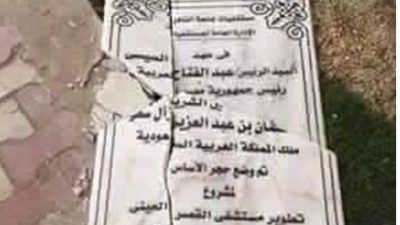 مستشفيات جامعة القاهرة
الإدارة العامة للمستشفيات
فى عهد
السيد الرئيس عبد الفتاح السيسى
رئيس جمهورية مصر العربية
الشريفين
بن عبد العزيز آل سعود
ملك المملكة العربية السعودية
تم وضع حجر الأساس
لمشروع
تطوير مستشفى القصر العينى